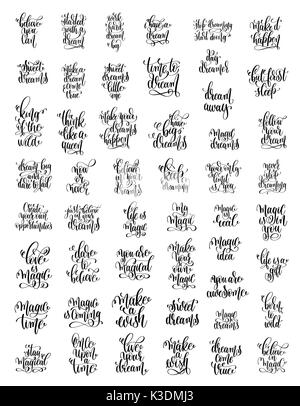 believe
you
can
it started
with a
dream
work
hard
dream
big
have
a dream
stop dreaming
start doing
make it
happen
sweet
dreams
make
a dream
come
true
sweet
dreams
little
one
time to
dream
day
dreams
but first
sleep
dream
away
king
of the
wild
think
like a
queen
have
big
dreams
magic
dreams
follow
your
dream
dream big
and
dare to fail
now
or
never
never
stop
dreaming
create
your own
opportunities
just believe
in your
dreams
life is
magic
my
magic
magic
is
real
magic
is
you
love
is
magic
dare
to
believe
you are
magical
make
your
own
magic
magic
idea
life
is a
gift
you are
awesome
magic
time
magic
is coming
make
a
wish
sweet
dreams
magic
dreams
born
to
wild
stay
magical
once
upon
a time
live
your
dream
make
a
wish
dreams
come
true
believe
in
magic
alamy
Image ID: K3DMJ3
www.alamy.com